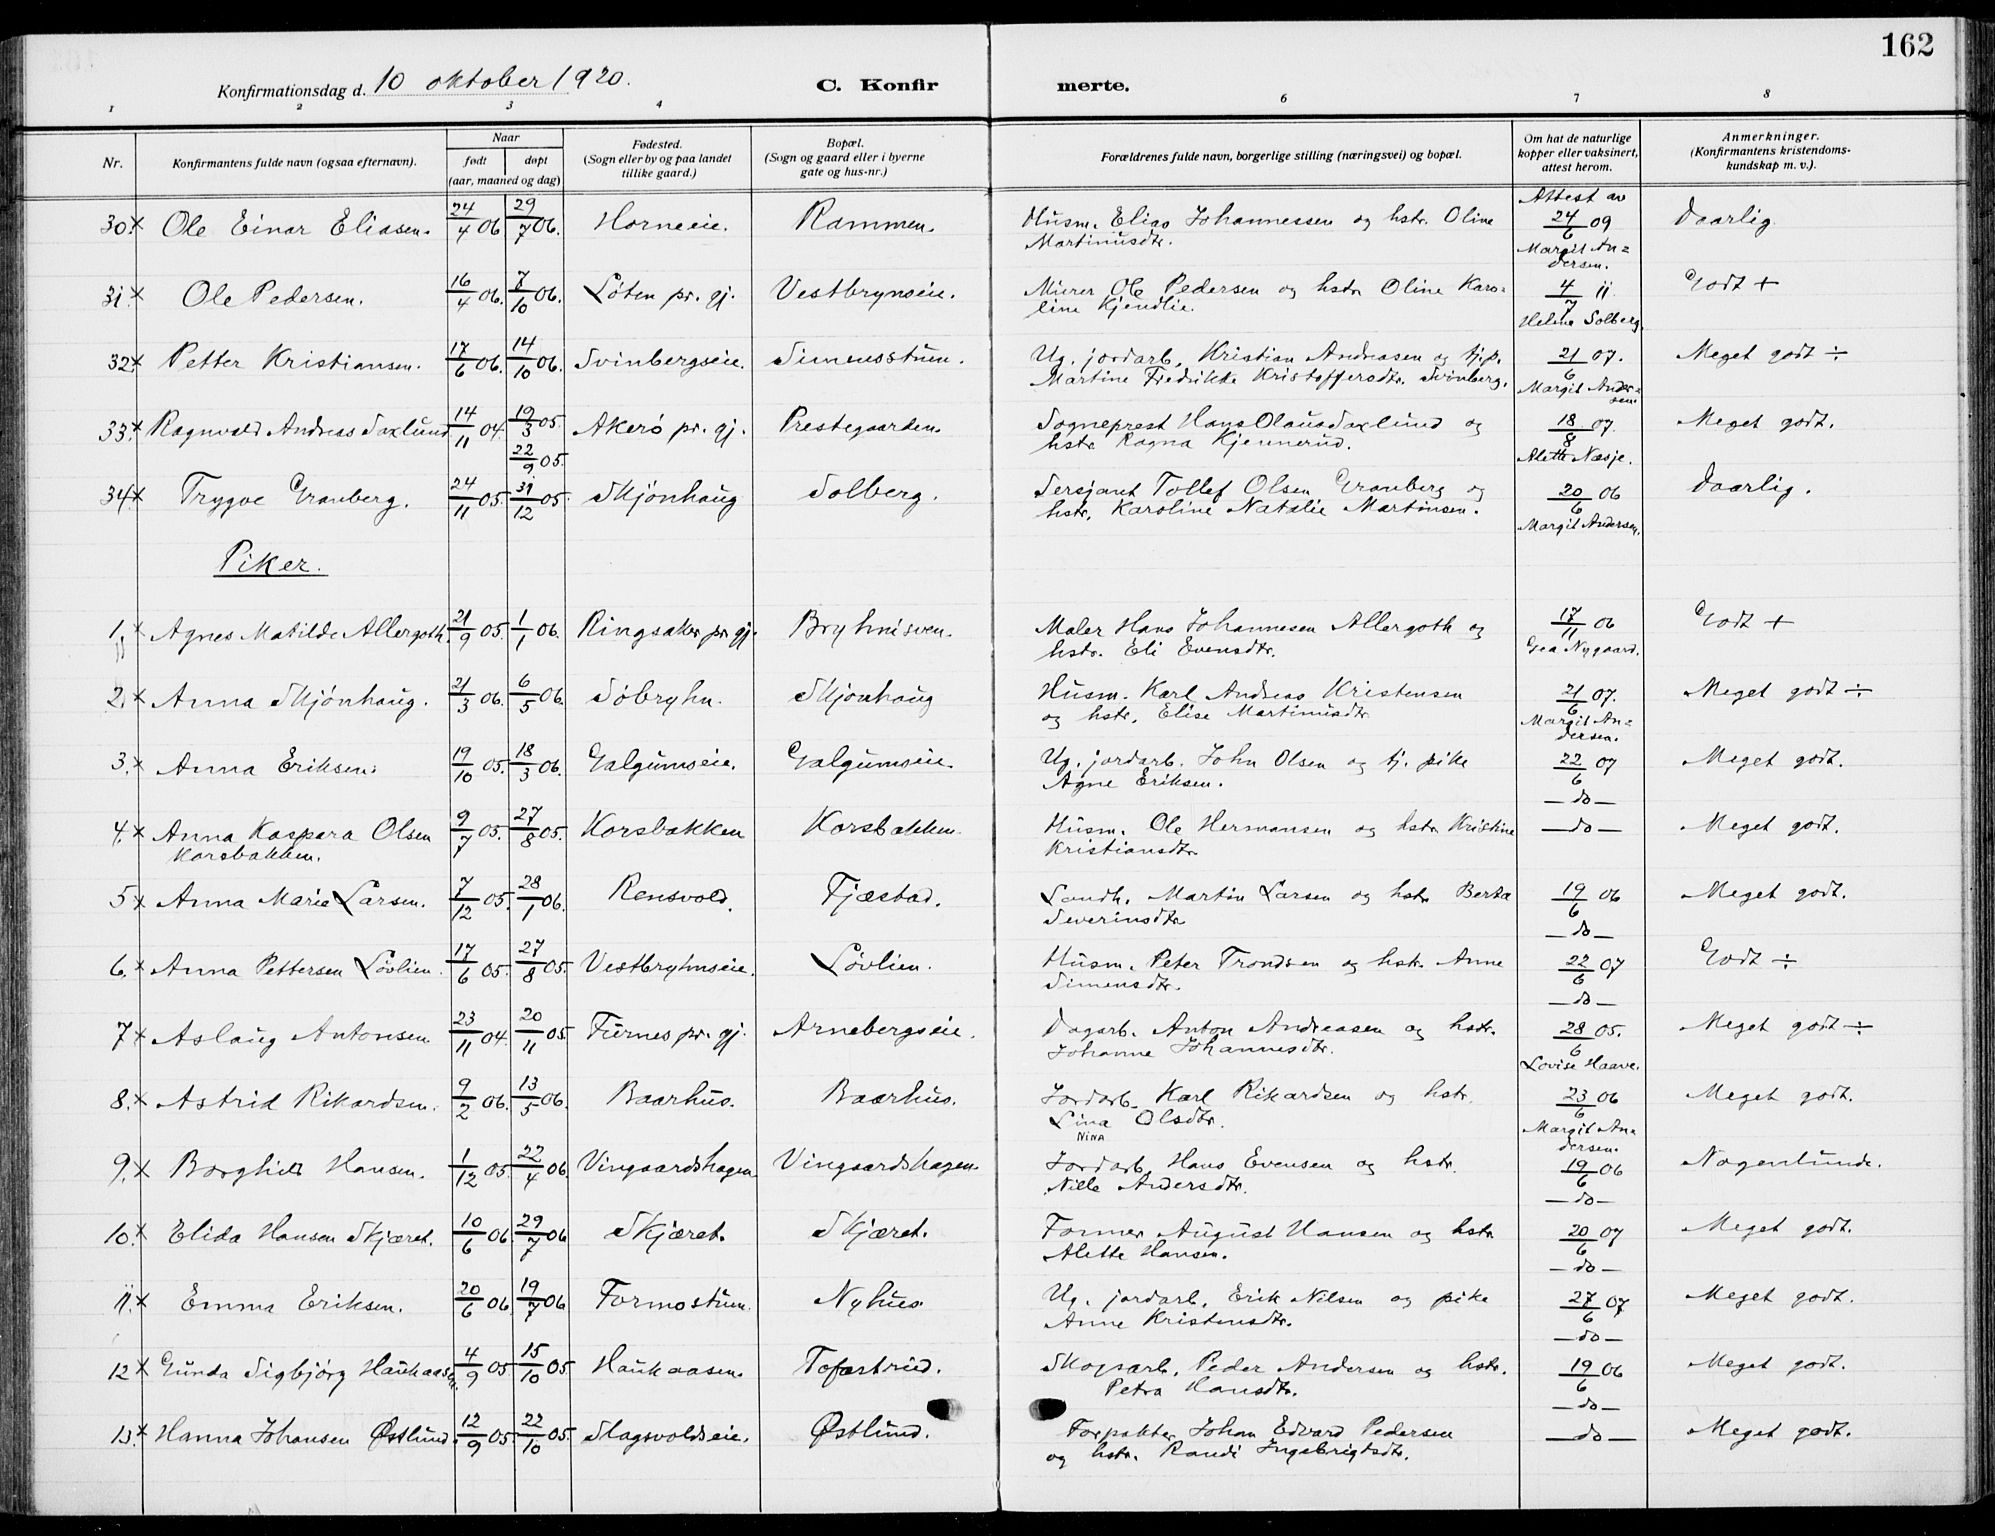 162
Konfirmationsdag d. 10 oktober 1920.
C. Konfirmerte.
1 2 3 4 6 7 8
Nr. | Konfirmantens fulde navn (ogsaa efternavn). | Naar født døpt (aar, maaned og dag) | Fødested. (Sogn eller by og paa landet tillike gaard.) | Bopæl. (Sogn og gaard eller i byerne gate og hus-nr.) | Forældrenes fulde navn, borgerlige stilling (næringsvei) og bopæl. | Om hat de naturlige kopper eller vaksinert, attest herom. | Anmerkninger. (Konfirmantens kristendomskundskap m. v.).
30. x Ole Einar Eliasen. 24/4 06 29/7 06. Horneeie. Rammen. Husm. Elias Johannessen og hstr. Oline Martinusdtr. Attest av 24/6 09 Margit Andersen. Daarlig.
31. x Ole Pedersen. 16/4 06. 7/10 06. Løten pr. gj. Vestbrynseie. Murer Ole Pedersen og hstr Oline Karoline Kjendlie. 4/7 11 Helene Solberg. Godt +
32. x Petter Kristiansen. 17/6 06. 14/10 06. Svinbergseie. Simensstuen. Ug. jordarb. Kristian Andreasen og tj.p. Martine Fredrikke Kristoffersdtr. Svinberg. 21/6 07. Margit Andersen. Meget godt ÷
33. x Ragnvald Andreas Saxlund 14/11 04. 19/3 05. 22/9 05. Akerø pr. gj. Prestegaarden. Sogneprest Hans Olaus Saxlund og hstr. Ragna Kjennerud. 18/8 07. Alette Næsje. Meget godt.
34. x Trygve Granberg. 24/11 05. 31/12 05. Skjønhaug Solberg. Sersjant Tollef Olsen Granberg og hstr. Karoline Natalie Martinsen. 20/6 06 Margit Andersen. Daarlig.
Piker.
1. x Agnes Matilde Allergoth 21/9 05. 1/1 06. Ringsaker pr gj. Bryhnisven. Maler Hans Johannesen Allergoth og hstr. Eli Evensdtr. 17/11 06 Gea Nygaard. Godt +
2. x Anna Skjønhaug. 21/3 06. 6/5 06. Søbryhn. Skjønhaug Husm. Karl Andreas Kristensen og hstr. Elise Martinusdtr 21/6 07. Margit Andersen. Meget godt ÷
3. x Anna Eriksen. 19/10 05. 18/3 06. Galgumseie. Galgumseie. Ug. jordarb. John Olsen og tj. pike Agne Eriksen. 22/6 07 —do— Meget godt.
4. x Anna Kaspara Olsen Korsbakken. 9/7 05. 27/8 05. Korsbakken Korsbakken. Husm. Ole Hermansen og hstr Kristine Kristiansdtr —do— Meget godt.
5 x Anna Marie Larsen. 7/12 05. 28/1 06. Rensvold. Fjæstad. Landh. Martin Larsen og hstr Berta Severinsdtr 19/6 06 —do— Meget godt.
6. x Anna Pettersen Løvlien. 17/6 05. 27/8 05. Vestbryhnseie. Løvlien. Husm. Peter Trondsen og hstr. Anne Simensdtr. 22/6 07 —do— Godt ÷
7. x Aslaug Antonsen 23/11 04. 20/11 05. Furnes pr. gj. Arnebergseie. Dagarb. Anton Andreasen og hstr. Johanne Johannesdtr. 28/6 05. Lovise Haave. Meget godt ÷
8. x Astrid Rikardsen. 9/2 06. 13/5 06. Baarhus. Baarhus. Jordarb. Karl Rikardsen og hstr. Lina Olsdtr. NINA 23/6 06 Margit Andersen. Meget godt.
9. x Borghild Hansen. 1/12 05. 22/4 06. Vingaardshagen Vingaardshagen. Jordarb. Hans Evensen og hstr. Nille Andersdtr. 19/6 06 —do— Nogenlunde.
10. x Elida Hansen Skjæret. 10/6 06. 29/7 06 Skjæret. Skjæret. Former August Hansen og hstr Alette Hansen. 20/6 07 —do— Meget godt.
11. x Emma Eriksen. 20/6 06. 19/7 06 Formostuen. Nyhus. Ug. jordarb. Erik Nilsen og pike Anne Kristensdtr. 27/6 07 —do— Meget godt.
12 x Gunda Sigbjørg Haukaasen. 4/9 05. 15/10 05. Haukaasen. Tofastrud. Skogsarb. Peder Andersen og hstr. Petra Hansdtr. 19/6 06 —do— Meget godt.
13. x Hanna Johansen Østlund. 12/9 05. 22/10 05. Slagsvoldseie. Østlund. Forpakter Johan Edvard Pedersen og hstr. Randi Ingebrigtsdtr. —do— Meget godt.